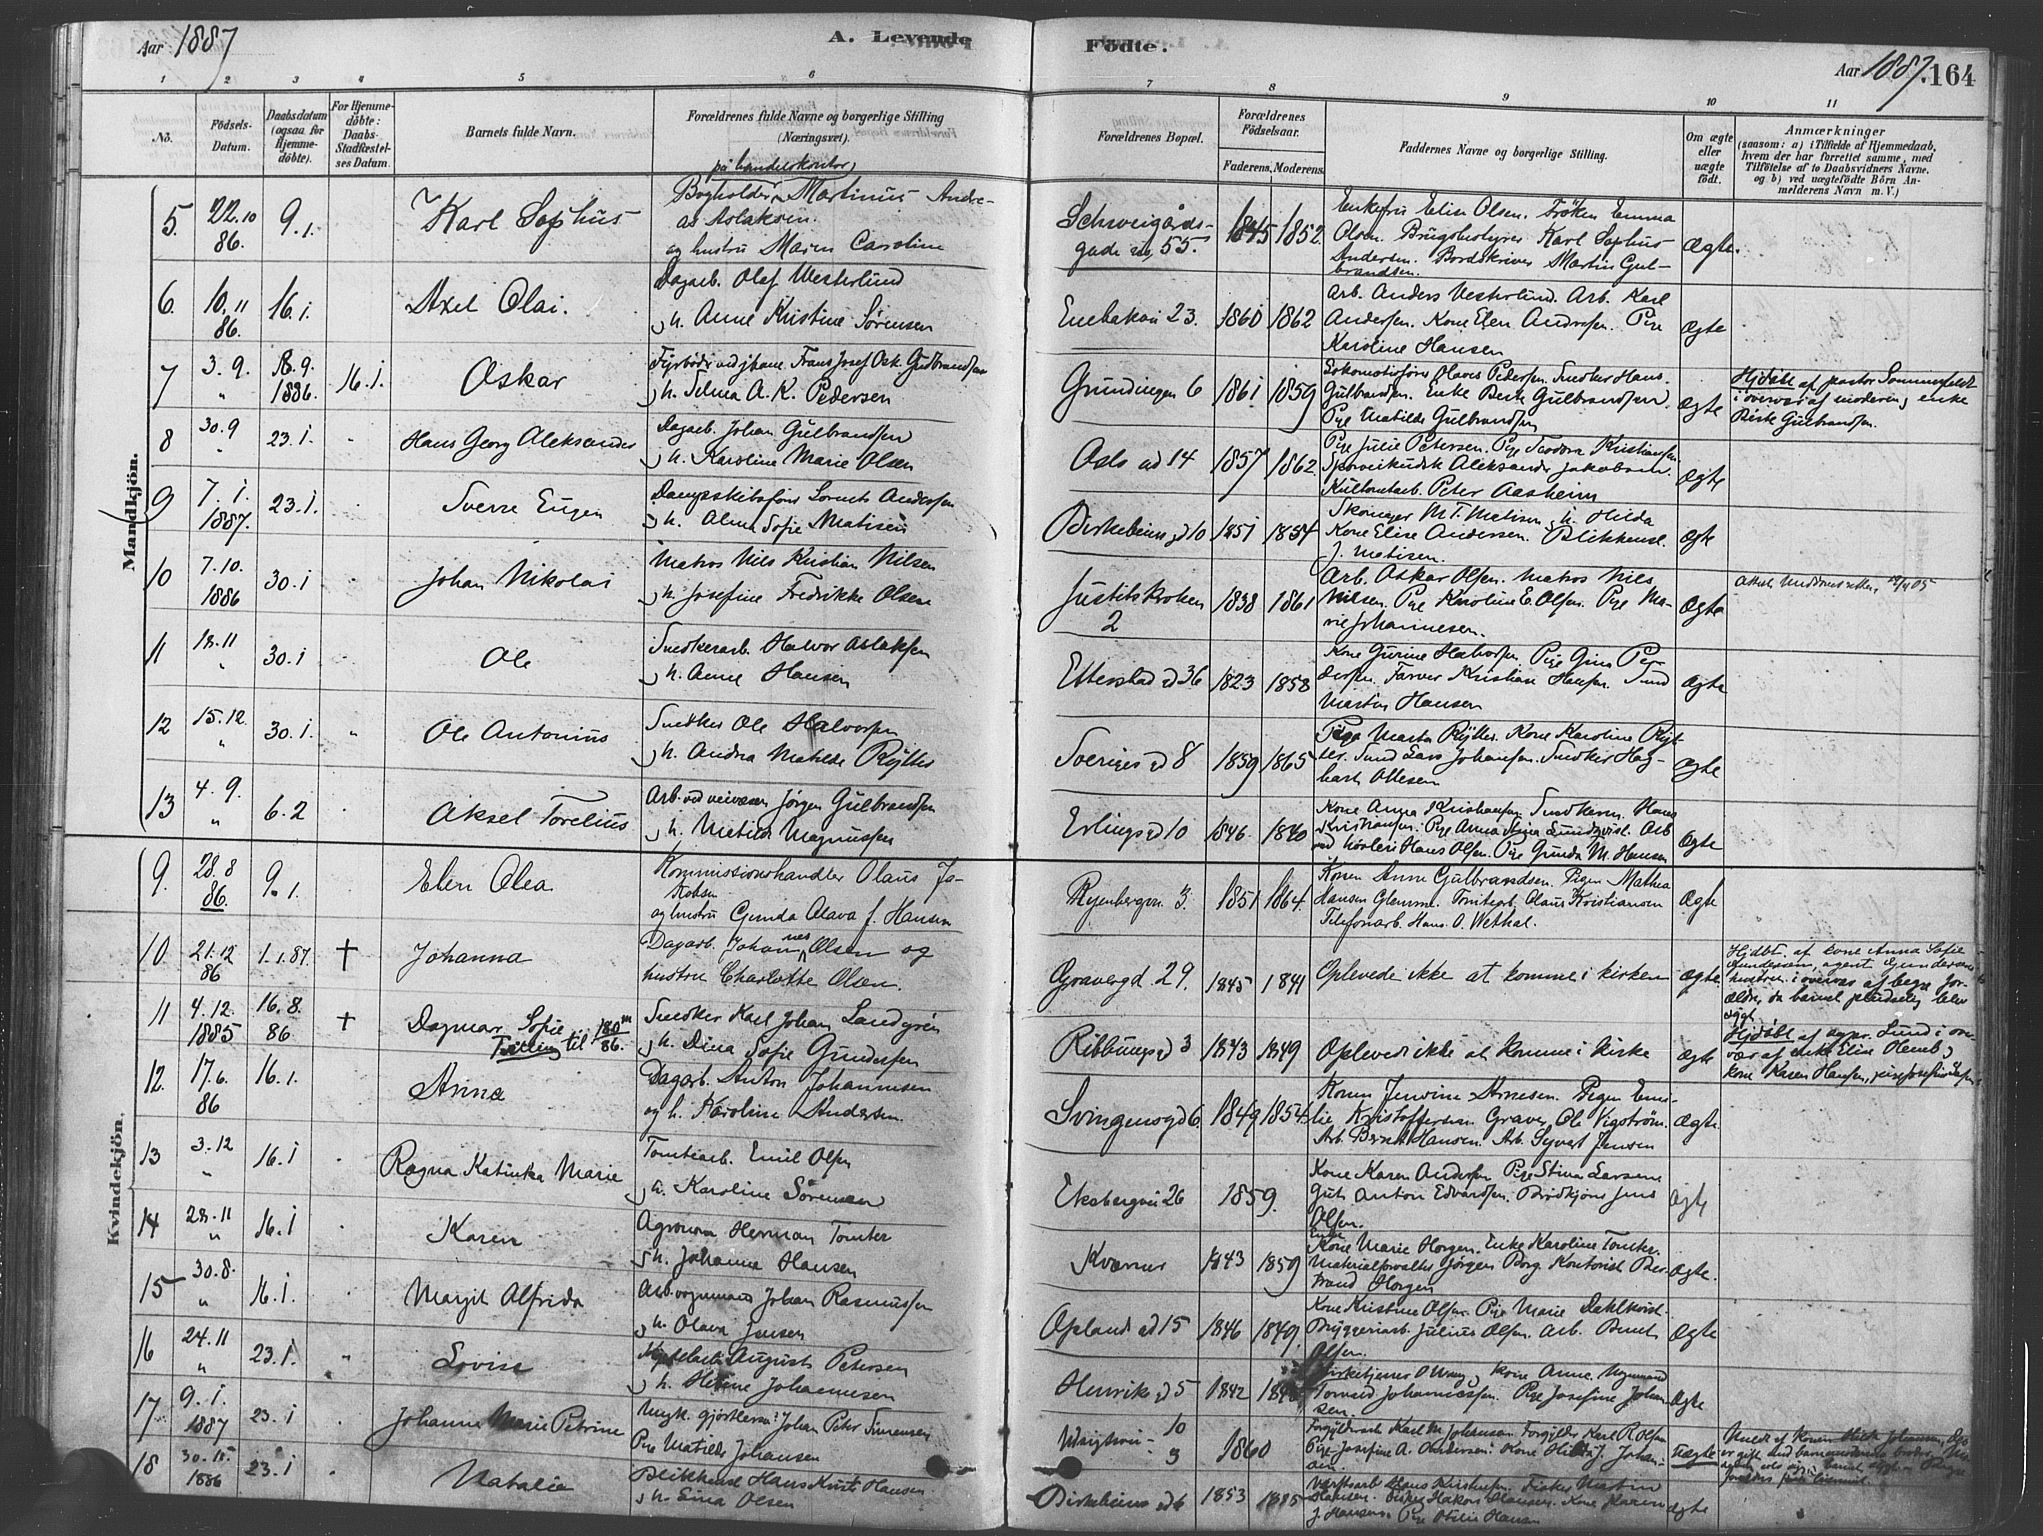 Aar 1887
A. Levende
Fødte.
Aar 1887.
164
1 2 3 4 5 6 7 8 9 10 11
No.
Fødsels-Datum.
Daabsdatum (ogsaa for Hjemmedøbte).
For Hjemmedøbte: Daabs-Stadfæstelses Datum.
Barnets fulde Navn.
Forældrenes fulde Navne og borgerlige Stilling (Næringsvei).
Forældrenes Bopæl.
Forældrenes Fødselsaar.
Faderens. Moderens.
Faddernes Navne og borgerlige Stilling.
Om ægte eller uægte født.
Anmærkninger
(saasom: a) i Tilfælde af Hjemmedaab, hvem der har forrettet samme, med Tilføielse af to Daabsvidners Navne. og b) ved uægtefødte Børn Anmelderens Navn m. V.)
Mandkjøn.
på handelskontor
5. 22.10 86. 9.1. Karl Sophus
Bogholder Martinus Andreas Aslaksen.
og hustru Maren Caroline
Schweigårds-gade 55. 1845 1852.
Enkefru Elise Olsen. Frøken Emma
Olsen. Brugsbestyrer Karl Sophus
Andersen. Bordskriver Martin Gulbrandsen.
Ægte.
6. 10.11 86. 16.1. Axel Olai.
Dagarb. Olaf Westerlund
h. Anne Kristine Sørensen
Enebakvei 23. 1860 1862
Arb. Anders Vesterlund. Arb. Karl
Andersen. Kone Elen Andersen. Pige
Karoline Hansen
Ægte
7 3.9. 18.9. 1886. 16.1. Oskar
Fyrbøder ved jbane. Frans Josef Osk. Gulbrandsen
h. Selma A. K. Pedersen
Grundingen 6 1861 1859
Lokomotivfører Olaves Pedersen. Snedker Hans
Gulbrandsen. Enke Berte Gulbrandsen.
Pge Matilde Gulbrandsen
Ægte
Hjdøbt af pastor Sommerfeldt
i overvær af moderen, enke
Berte Gulbrandsen.
8 30.9 23.1. Hans Georg Aleksander
Dagarb. Johan Gulbrandsen
h. Karoline Marie Olsen
Oslo gd 14 1857 1862.
Pge Julie Petersen. Pge Teodora Kristiansen
Sporveikudsk Aleksander Jakobsen.
Kullomtarb. Peter Aasheim
Ægte
9 7.1. 1887. 23.1. Sverre Eugen
Dampskibsfører Lorents Andersen
h. Alma Sofie Matisen
Birkebeiner gd 10 1851 1854
Skomager M. T. Matisen, h. Hilda
Kone Elise Andersen. Blikkensl.
J. Matisen.
Ægte
10 7.10. 1886 30.1 Johan Nikolai
Matros Nils Kristian Nilsen
h. Josefine Fredrikke Olsen
Justitskroken 2 1838 1861
Arb. Oskar Olsen. Matros Nils
Nilsen. Pge Karoline E. Olsen. Pge Marie Johannesen.
Ægte
11 18.11 30.1 Ole
Snedkerarb. Halvor Aslaksen
h. Anne Hansen
Etterstad gd 36 1823 1858
Kone Gurine Halvorsen. Pige Gina Pedersen. Farver Kristian Hansen. Smed
Martin Hansen
Ægte
12 15.12. 30.1. Ole Antonius
Snedker Ole Halvorsen
h. Andrea Matilde Rytter
Sveriges gd 8 1859 1865
Pige Marta Rytter. Kone Karoline Rytter. Smed Lars Johansen. Snedker Hagbart Ottesen
Ægte
13 4.9. 6.2 Aksel Torelius
Arb. ved veivæsen Jørgen Gulbrandsen
h. Matilde Magnussen
Erlings gd 10 1846. 1840
Kone Anna Kristiansen. Snedkersv. Hans
Kristiansen. Pge Anna Stina Lundqvist. Arb
ved Høvleri Hans Olsen. Pge Gunda M. Hansen
Ægte
Kvindekjøn.
9. 28.8 86. 9.1. Elen Olea
Kommissionshandler Olaus Jakobsen
og hustru Gunda Olava f. Hansen
Ryenbergvn. 3. 1851 1864.
Konen Anne Gulbrandsen. Pigen Mathea
Hansen Glemme. Tomtearb. Olaus Kristiansen
Telefonarb. Hans O. Wethal.
Ægte
10. 21.12 86 1.1.87. † Johanna
Dagarb. Johannes Olsen og
hustru Charlotte Olsen.
Gravergd. 29. 1845 1841
Oplevede ikke at komme i kirken
Ægte.
Hjdbt. af kone Anna Sofie
Gundersen, agent Gundersens
hustru i overvær af begge forældre, da barnet pludselig blev sygt.
11 4.12. 1885 16.8. 86 † Dagmar Sofie
Tvilling til 180m/86.
Snedker Karl Johan Landgren
h. Dina Sofie Gundersen
Ribbungs gd 3 1843 1849
Oplevede ikke at komme i kirke
Ægte
Hjdøbt af Lund i overvær af enke Elise Hemb,
kone Karen Hansen,
12. 17.6. 86 16.1. Anna
Dagarb. Anton Johannesen
og h. Karoline Andersen.
Svingensgd 6. 1849 1854
Konen Jensine Arnesen. Pigen Emilie Kristoffersen. Graver Ole Vigstrøm.
Arb. Bernt Hansen. Arb. Syvert Jensen
Ægte.
13 3.12 16.1 Ragna Katinka Marie
Tomtearb. Emil Olsen
h. Karoline Sørensen
Ekebergvei 26 1859.
Kone Karen Andersen Pige Stina Larsen
Gut Anton Edvardsen. Brødkjører Jens
Olsen.
Ægte
14 28.11 16.1 Karen
Agronom Herman Tomter
h. Johanne Hansen
Kværner 1843 1859
Kone Marie Horgen. Enke Karoline Tomter.
Materialforvalter Jørgen Borg. Kontorist Bertrand Horgen
Ægte.
15 30.8. 16.1. Margit Alfrida
Arb. Johan Rasmussen
h. Olava Jensen
Opland gd 15 1846 1849.
Kone Kristine Olsen. Pge Marie Dahlkvist.
Bryggeriarb. Julius Olsen. Arb. Bernt
Olsen.
Ægte
16 24.11 23.1. Lovise
August Petersen
h. Helene Johannesen
Henriks gd 5 1842
Kirketjener kone Anne
Johannessen. Pge Josefine Johansen.
Ægte
17 9.1. 1887 23.1 Johanne Marie Petrine
Ungk. gjørtlersv. Johan Peter Simensen
Pge Matilde Johansen
10 3 1860
Forgylderarb. Karl M. Johansen. Forgylder Karl R. Olsen
Pge Josefine A. Andersen. Kone Hilda J. Johansen.
uægte
18 30.10. 1886 23.1 Natalie
Blikkensl. Hans Krist. Hansen
h. Elina Olsen
Birkebeiner gd 6 1853
Verftsarb. Hans Kristensen. Fisker Martin
Hansen. Fisker Håkon Hansen. Kone Karen
J. Hansen. Pge Otilie Hansen
Ægte